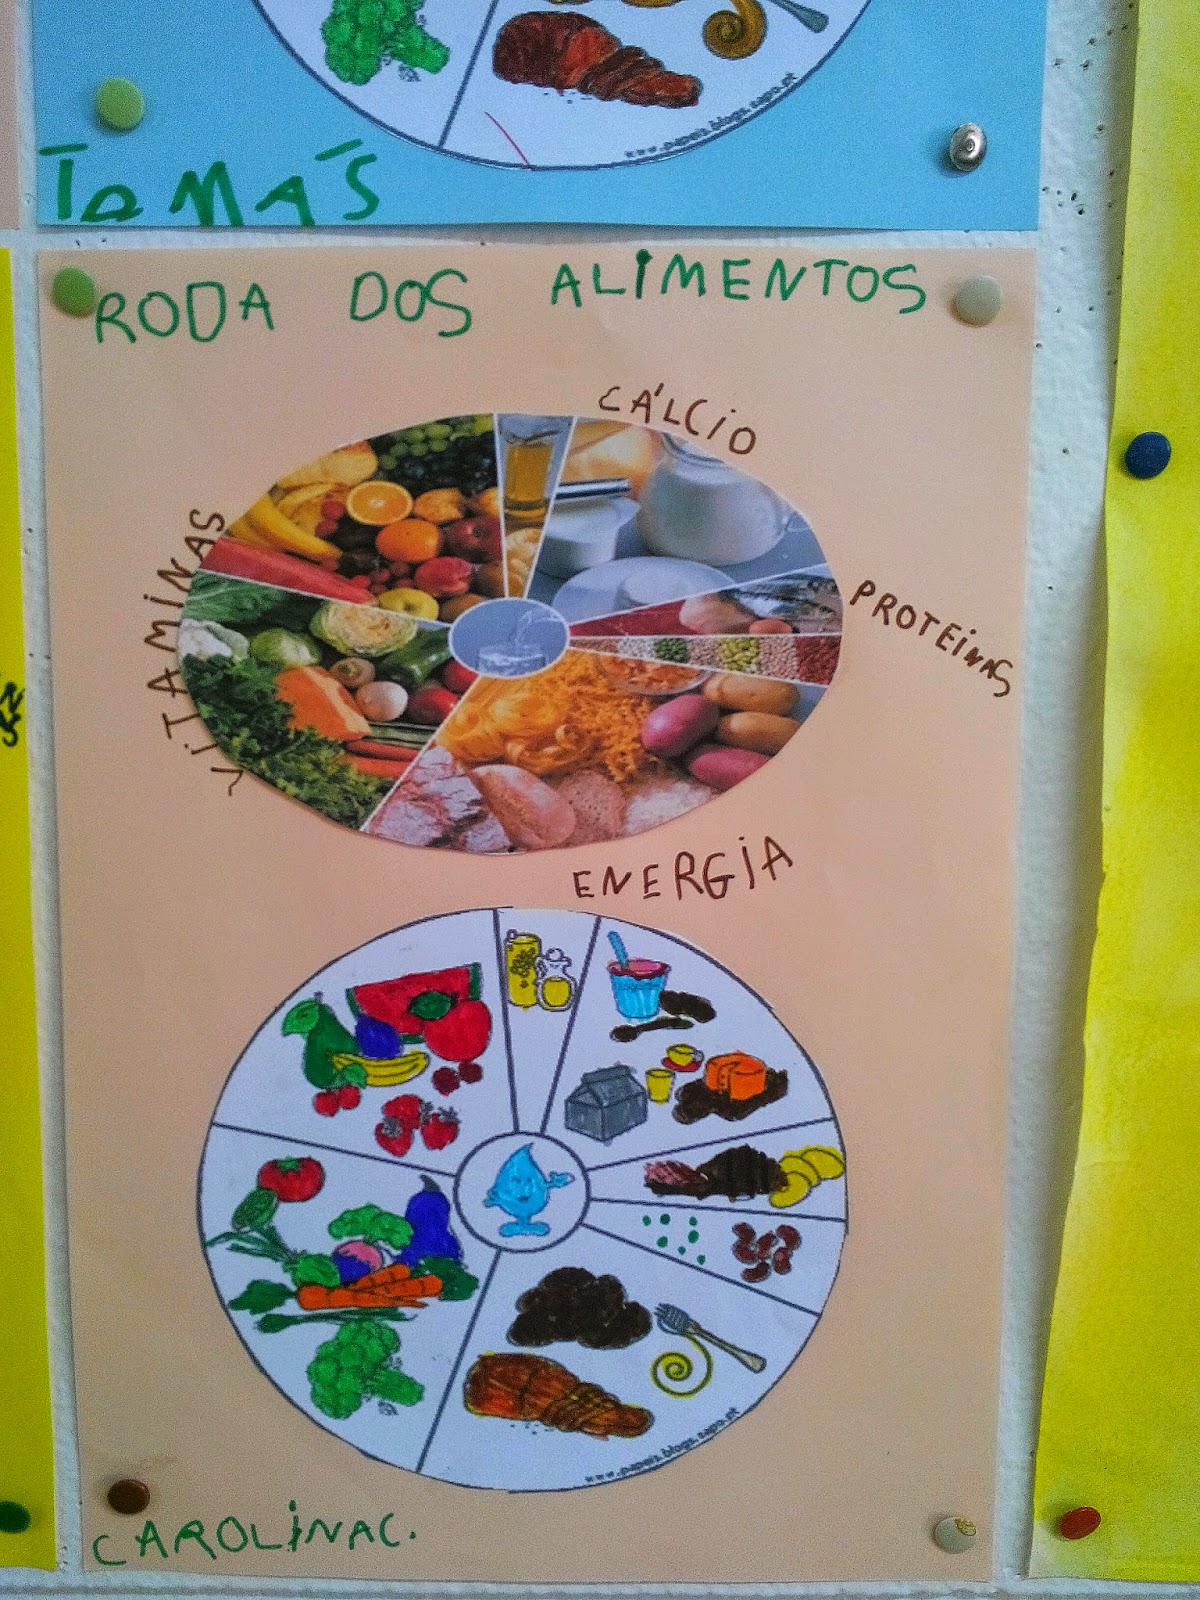 www.papeis.blogs.sapo.pt
TOMÁS
RODA DOS ALIMENTOS
CÁLCIO
VITAMINAS
PROTEINAS
ENERGIA
www.papeis.blogs.sapo.pt
CAROLINA C.